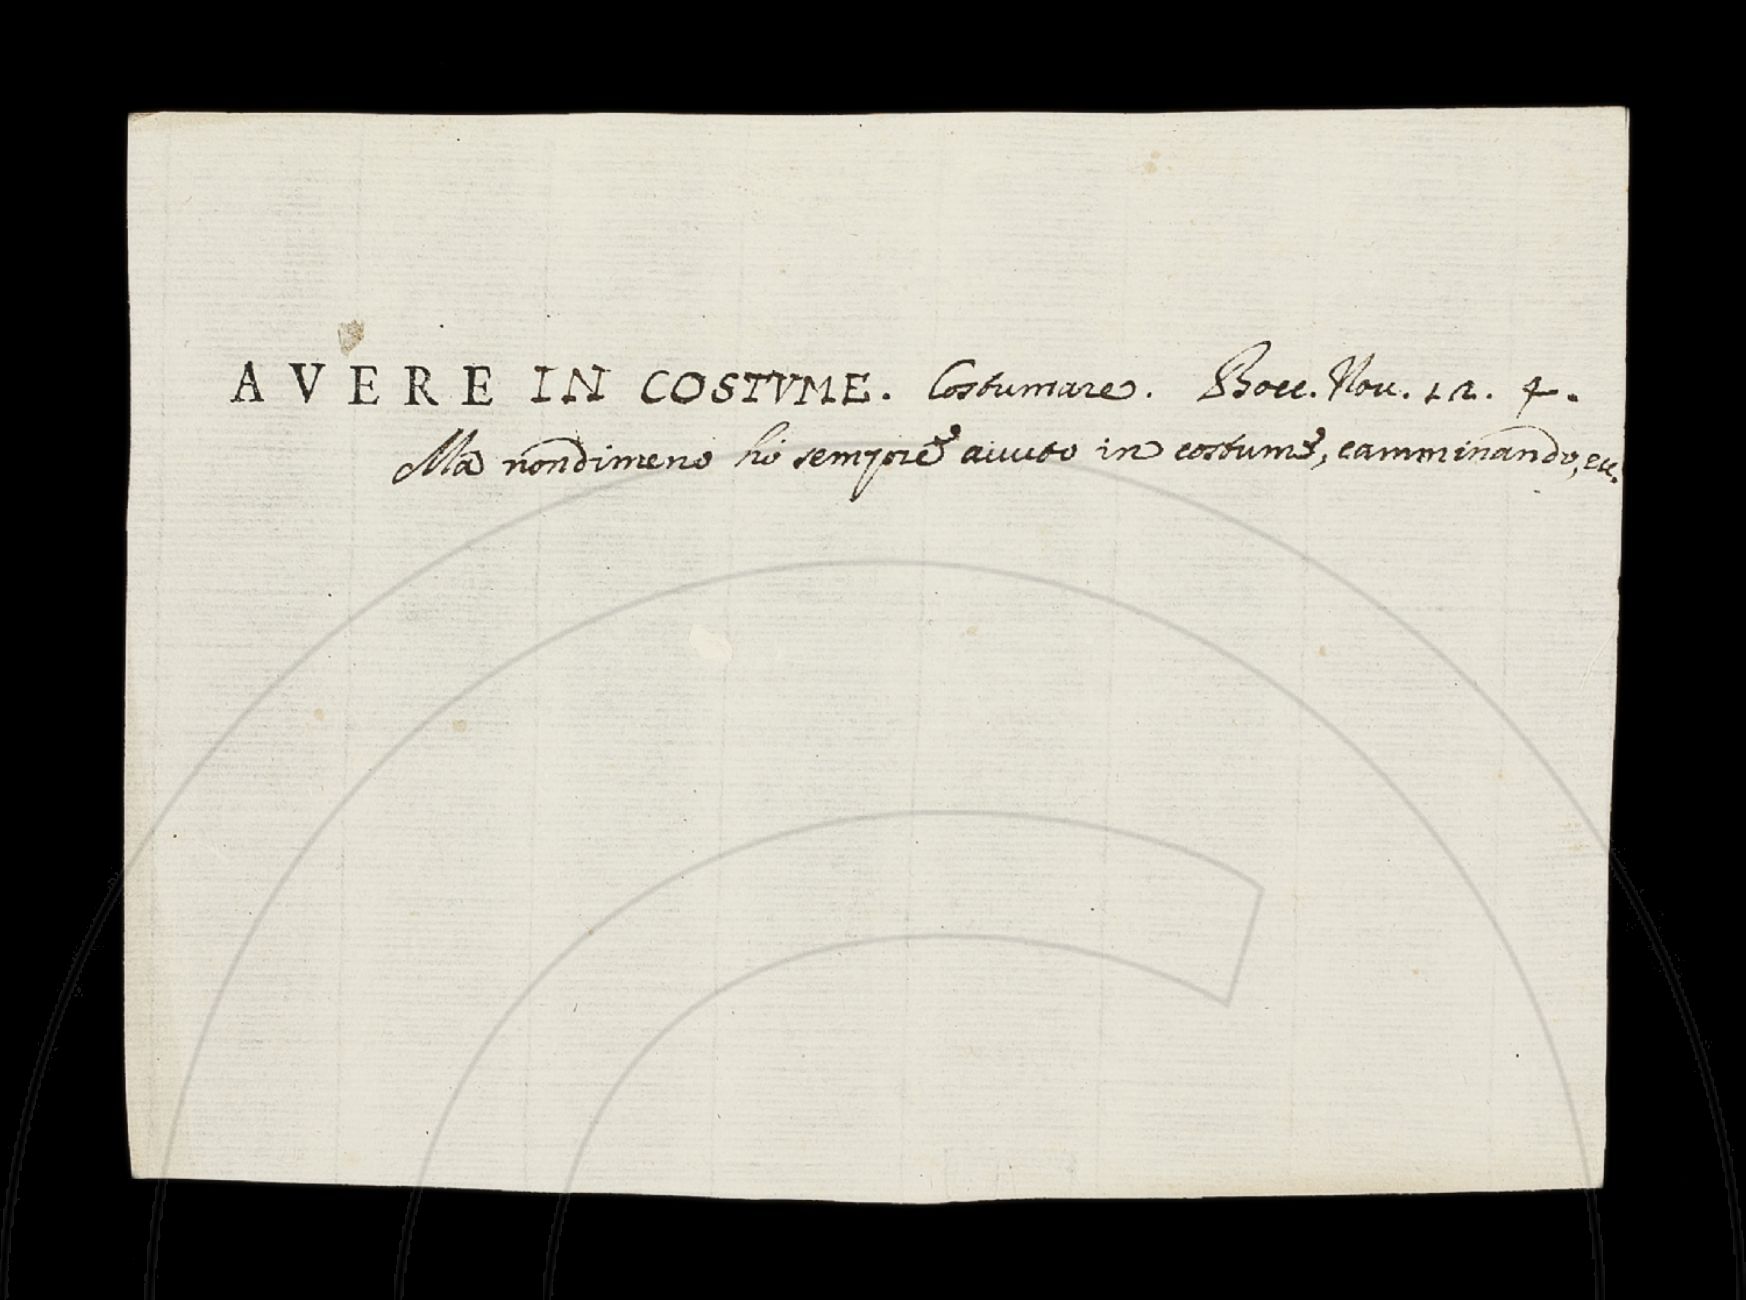 AVERE IN COSTVME. Costumare. Bocc. Nou. 12. 4.
Ma nondimeno ho sempre auuto in costume, camminando, ec.